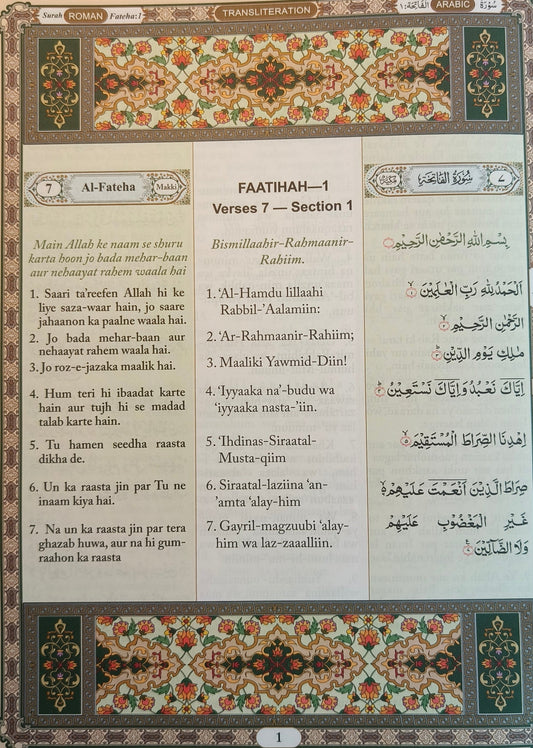 Surah ROMAN Fateha:1
TRANSLITERATION
الفَاتِحَة:١ ARABIC سُوْرَةُ
7 Al-Fateha Makki
Main Allah ke naam se shuru
karta hoon jo bada mehar-baan
aur nehaayat rahem waala hai
1. Saari ta'reefen Allah hi ke
liye saza-waar hain, jo saare
jahaanon ka paalne waala hai.
2. Jo bada mehar-baan aur
nehaayat rahem waala hai.
3. Jo roz-e-jazaka maalik hai.
4. Hum teri hi ibaadat karte
hain aur tujh hi se madad
talab karte hain.
5. Tu hamen seedha raasta
dikha de.
6. Un ka raasta jin par Tu ne
inaam kiya hai.
7. Na un ka raasta jin par tera
ghazab huwa, aur na hi gum-
raahon ka raasta
FAATIHAH—1
Verses 7 — Section 1
Bismillaahir-Rahmaanir-
Rahiim.
1. ‘Al-Hamdu lillaahi
Rabbil-’Aalamiin:
2. ‘Ar-Rahmaanir-Rahiim;
3. Maaliki Yawmid-Diin!
4. ‘Iyyaaka na’-budu wa
‘iyyaaka nasta-’iin.
5. ‘Ihdinas-Siraatal-
Musta-qiim
6. Siraatal-laziina ‘an-
’amta ‘alay-him
7. Gayril-magzuubi ‘alay-
him wa laz-zaaalliin.
٧ سُوْرَةُ الْفَاتِحَةِ مَكِّيَّة
بِسْمِ اللهِ الرَّحْمٰنِ الرَّحِيْمِ
اَلْحَمْدُ لِلّٰهِ رَبِّ الْعٰلَمِيْنَ ۙ١
الرَّحْمٰنِ الرَّحِيْمِ ۙ٢
مٰلِكِ يَوْمِ الدِّيْنِ ٣
اِيَّاكَ نَعْبُدُ وَاِيَّاكَ نَسْتَعِيْنُ ٤
اِهْدِنَا الصِّرَاطَ الْمُسْتَقِيْمَ ۙ٥
صِرَاطَ الَّذِيْنَ اَنْعَمْتَ عَلَيْهِمْ ۙ٦
غَيْرِ الْمَغْضُوْبِ عَلَيْهِمْ
وَلَا الضَّآلِّيْنَ ٧
1